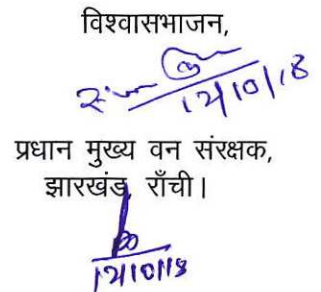 विश्वासभाजन,
12/10/18
प्रधान मुख्य वन संरक्षक,
झारखंड, राँची।
12/10/18